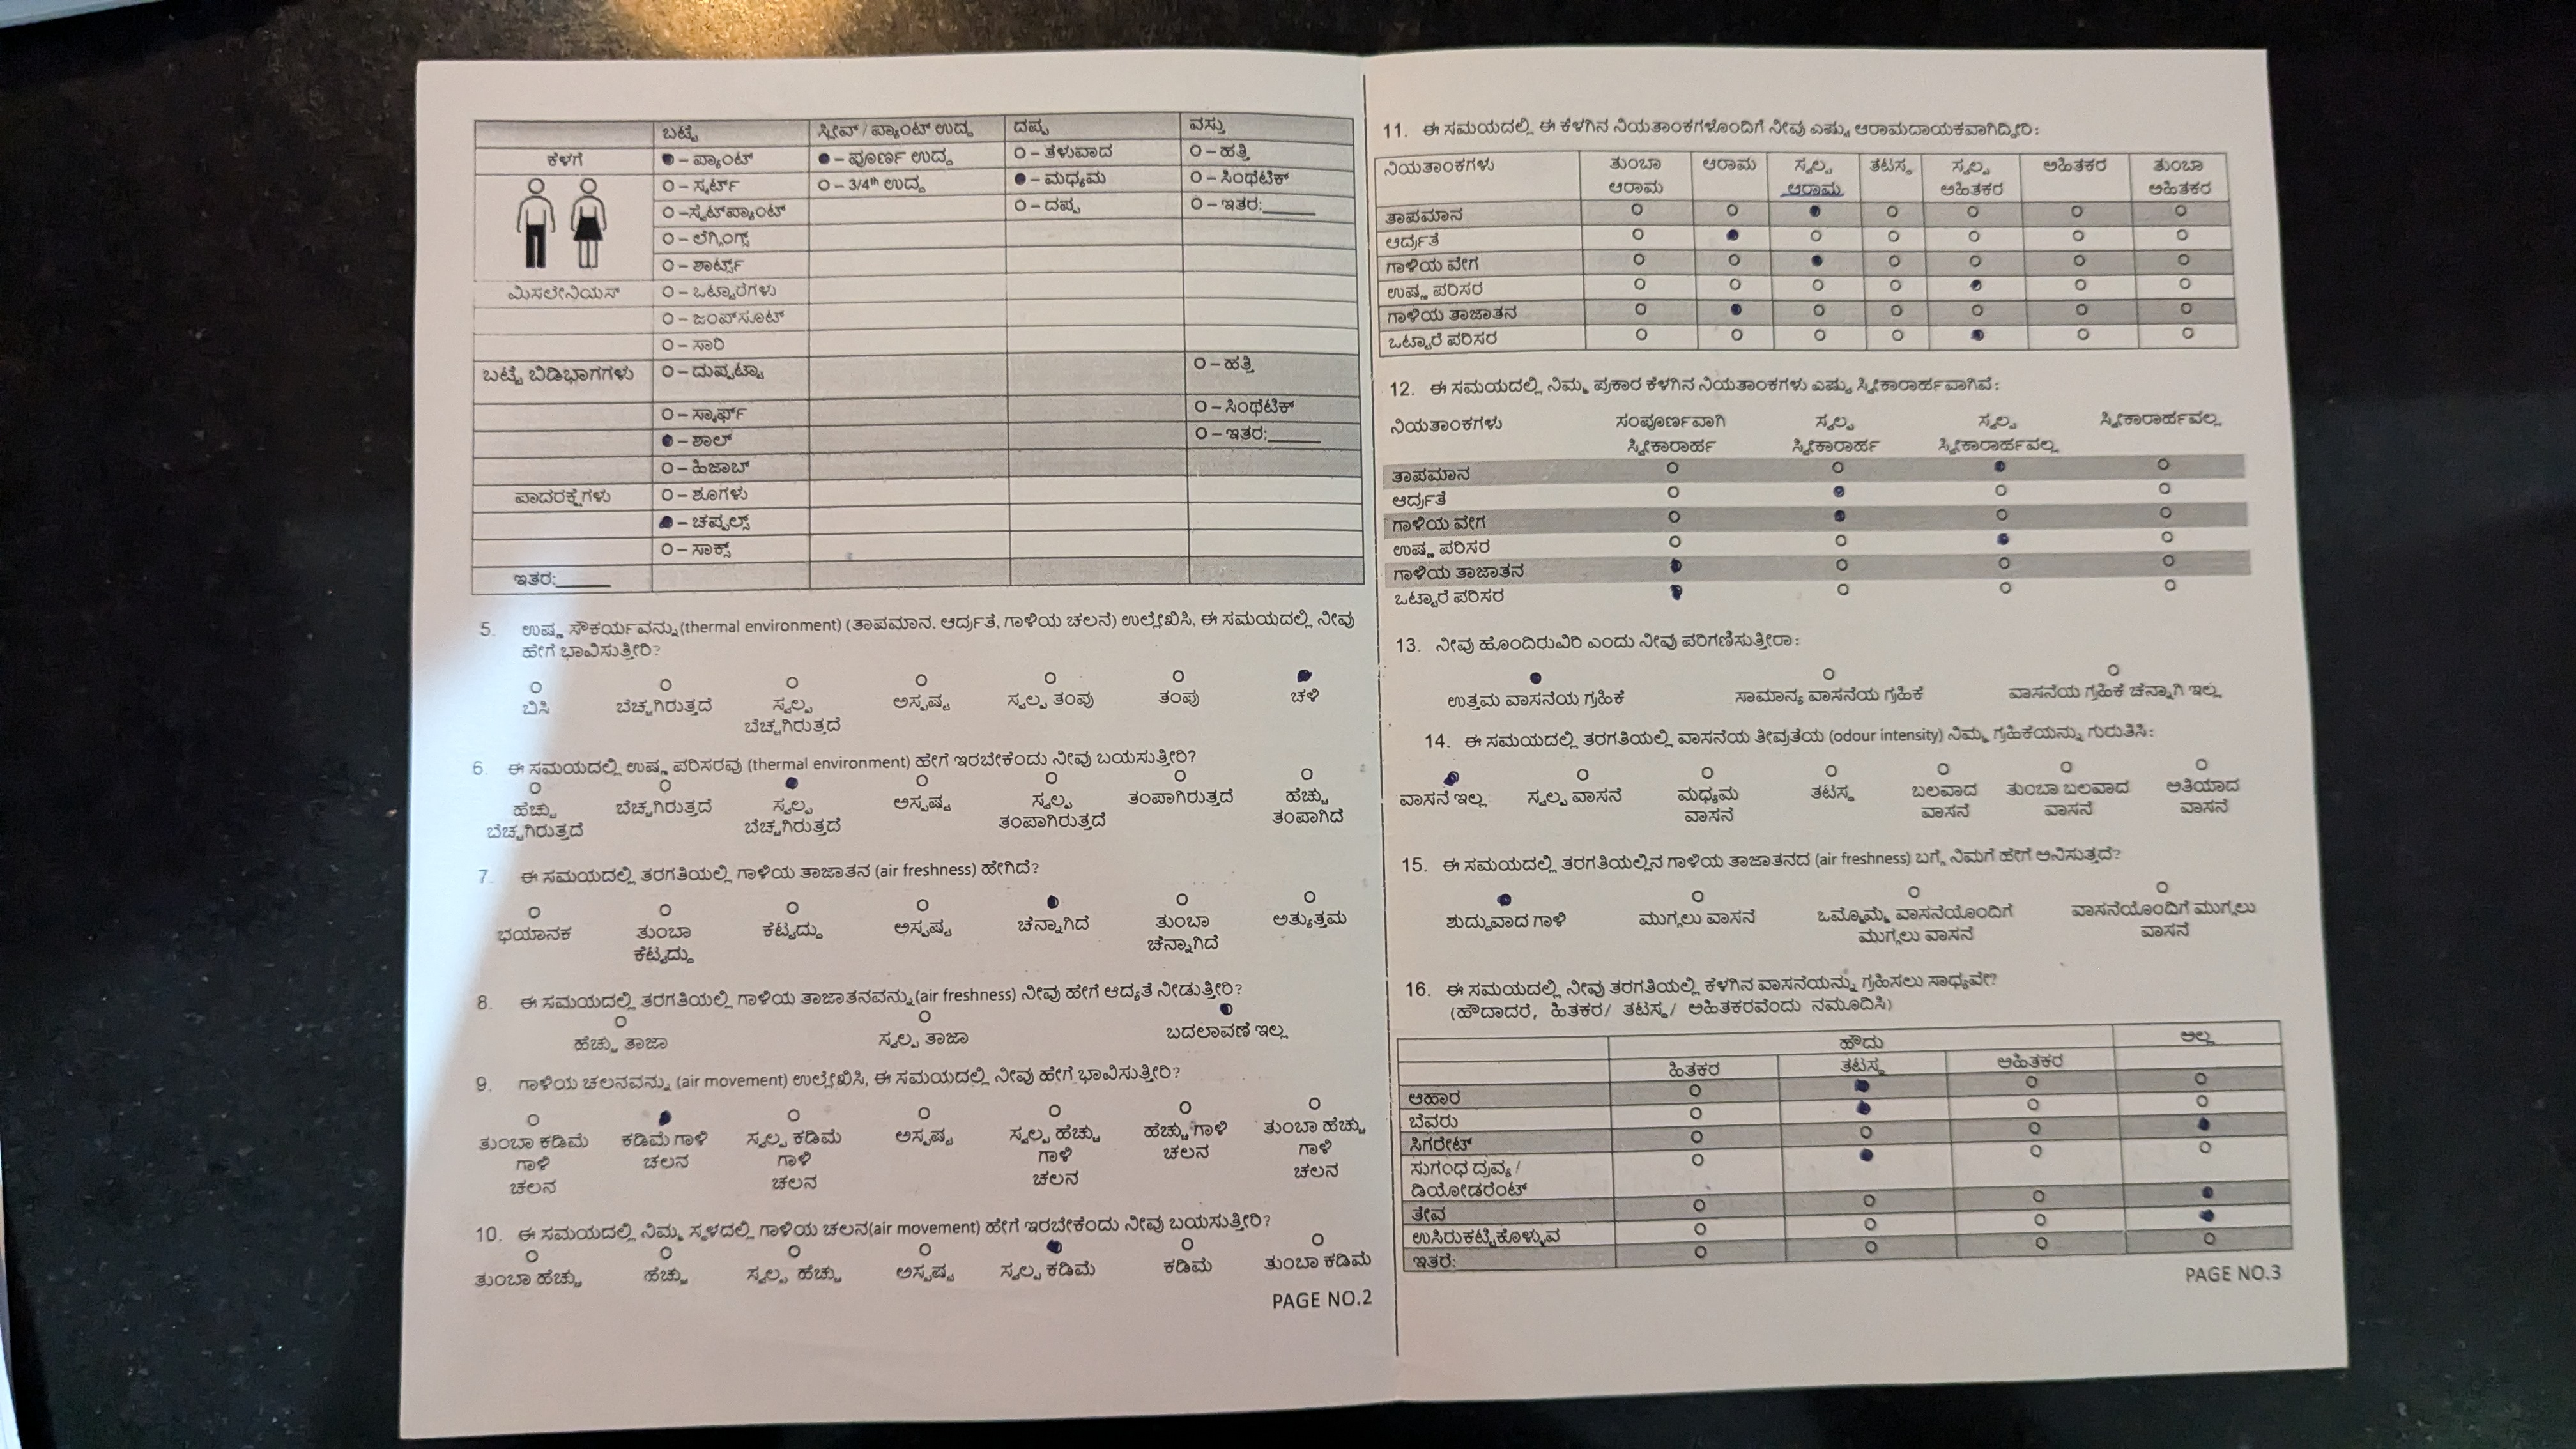 ಬಟ್ಟೆ ಸ್ಲೀವ್ / ಪ್ಯಾಂಟ್ ಉದ್ದ ದಪ್ಪ ವಸ್ತು
ಕೆಳಗೆ ●– ಪ್ಯಾಂಟ್ ●– ಪೂರ್ಣ ಉದ್ದ O – ತೆಳುವಾದ O – ಹತ್ತಿ
O – ಸ್ಕರ್ಟ್ O – 3/4th ಉದ್ದ ●– ಮಧ್ಯಮ O – ಸಿಂಥೆಟಿಕ್
O –ಸ್ವೆಟ್‌ಪ್ಯಾಂಟ್ O – ದಪ್ಪ O – ಇತರ:______
O – ಲೆಗ್ಗಿಂಗ್ಸ್
O – ಶಾರ್ಟ್ಸ್
ಮಿಸಲೇನಿಯಸ್ O – ಒಟ್ಟಾರೆಗಳು
O – ಜಂಪ್‌ಸೂಟ್
O – ಸಾರಿ
ಬಟ್ಟೆ ಬಿಡಿಭಾಗಗಳು O – ದುಪ್ಪಟ್ಟಾ O – ಹತ್ತಿ
O – ಸ್ಕಾರ್ಫ್ O – ಸಿಂಥೆಟಿಕ್
●– ಶಾಲ್ O – ಇತರ:______
O – ಹಿಜಾಬ್
ಪಾದರಕ್ಷೆಗಳು O – ಶೂಗಳು
●– ಚಪ್ಪಲ್ಸ್
O – ಸಾಕ್ಸ್
ಇತರ:______
5. ಉಷ್ಣ ಸೌಕರ್ಯವನ್ನು(thermal environment) (ತಾಪಮಾನ. ಆರ್ದ್ರತೆ, ಗಾಳಿಯ ಚಲನೆ) ಉಲ್ಲೇಖಿಸಿ, ಈ ಸಮಯದಲ್ಲಿ ನೀವು
ಹೇಗೆ ಭಾವಿಸುತ್ತೀರಿ?
ಬಿಸಿ ಬೆಚ್ಚಗಿರುತ್ತದೆ ಸ್ವಲ್ಪ ಅಸ್ಪಷ್ಟ ಸ್ವಲ್ಪ ತಂಪು ತಂಪು ಚಳಿ
ಬೆಚ್ಚಗಿರುತ್ತದೆ
6. ಈ ಸಮಯದಲ್ಲಿ ಉಷ್ಣ ಪರಿಸರವು (thermal environment) ಹೇಗೆ ಇರಬೇಕೆಂದು ನೀವು ಬಯಸುತ್ತೀರಿ?
ಹೆಚ್ಚು ಬೆಚ್ಚಗಿರುತ್ತದೆ ಸ್ವಲ್ಪ ಅಸ್ಪಷ್ಟ ಸ್ವಲ್ಪ ತಂಪಾಗಿರುತ್ತದೆ ಹೆಚ್ಚು
ಬೆಚ್ಚಗಿರುತ್ತದೆ ಬೆಚ್ಚಗಿರುತ್ತದೆ ತಂಪಾಗಿರುತ್ತದೆ ತಂಪಾಗಿದೆ
7. ಈ ಸಮಯದಲ್ಲಿ ತರಗತಿಯಲ್ಲಿ ಗಾಳಿಯ ತಾಜಾತನ (air freshness) ಹೇಗಿದೆ?
ಭಯಾನಕ ತುಂಬಾ ಕೆಟ್ಟದ್ದು ಅಸ್ಪಷ್ಟ ಚೆನ್ನಾಗಿದೆ ತುಂಬಾ ಅತ್ಯುತ್ತಮ
ಕೆಟ್ಟದ್ದು ಚೆನ್ನಾಗಿದೆ
8. ಈ ಸಮಯದಲ್ಲಿ ತರಗತಿಯಲ್ಲಿ ಗಾಳಿಯ ತಾಜಾತನವನ್ನು(air freshness) ನೀವು ಹೇಗೆ ಆದ್ಯತೆ ನೀಡುತ್ತೀರಿ?
ಹೆಚ್ಚು ತಾಜಾ ಸ್ವಲ್ಪ ತಾಜಾ ಬದಲಾವಣೆ ಇಲ್ಲ
9. ಗಾಳಿಯ ಚಲನವನ್ನು (air movement) ಉಲ್ಲೇಖಿಸಿ, ಈ ಸಮಯದಲ್ಲಿ ನೀವು ಹೇಗೆ ಭಾವಿಸುತ್ತೀರಿ?
ತುಂಬಾ ಕಡಿಮೆ ಕಡಿಮೆ ಗಾಳಿ ಸ್ವಲ್ಪ ಕಡಿಮೆ ಅಸ್ಪಷ್ಟ ಸ್ವಲ್ಪ ಹೆಚ್ಚು ಹೆಚ್ಚು ಗಾಳಿ ತುಂಬಾ ಹೆಚ್ಚು
ಗಾಳಿ ಚಲನ ಗಾಳಿ ಗಾಳಿ ಚಲನ ಗಾಳಿ
ಚಲನ ಚಲನ ಚಲನ ಚಲನ
10. ಈ ಸಮಯದಲ್ಲಿ ನಿಮ್ಮ ಸ್ಥಳದಲ್ಲಿ ಗಾಳಿಯ ಚಲನ(air movement) ಹೇಗೆ ಇರಬೇಕೆಂದು ನೀವು ಬಯಸುತ್ತೀರಿ?
ತುಂಬಾ ಹೆಚ್ಚು ಹೆಚ್ಚು ಸ್ವಲ್ಪ ಹೆಚ್ಚು ಅಸ್ಪಷ್ಟ ಸ್ವಲ್ಪ ಕಡಿಮೆ ಕಡಿಮೆ ತುಂಬಾ ಕಡಿಮೆ
PAGE NO.2
11. ಈ ಸಮಯದಲ್ಲಿ ಈ ಕೆಳಗಿನ ನಿಯತಾಂಕಗಳೊಂದಿಗೆ ನೀವು ಎಷ್ಟು ಆರಾಮದಾಯಕವಾಗಿದ್ದೀರಿ:
ನಿಯತಾಂಕಗಳು ತುಂಬಾ ಆರಾಮ ಸ್ವಲ್ಪ ತಟಸ್ಥ ಸ್ವಲ್ಪ ಅಹಿತಕರ ತುಂಬಾ
ಆರಾಮ ಆರಾಮ ಅಹಿತಕರ ಅಹಿತಕರ
ತಾಪಮಾನ
ಆರ್ದ್ರತೆ
ಗಾಳಿಯ ವೇಗ
ಉಷ್ಣ ಪರಿಸರ
ಗಾಳಿಯ ತಾಜಾತನ
ಒಟ್ಟಾರೆ ಪರಿಸರ
12. ಈ ಸಮಯದಲ್ಲಿ ನಿಮ್ಮ ಪ್ರಕಾರ ಕೆಳಗಿನ ನಿಯತಾಂಕಗಳು ಎಷ್ಟು ಸ್ವೀಕಾರಾರ್ಹವಾಗಿವೆ:
ನಿಯತಾಂಕಗಳು ಸಂಪೂರ್ಣವಾಗಿ ಸ್ವಲ್ಪ ಸ್ವಲ್ಪ ಸ್ವೀಕಾರಾರ್ಹವಲ್ಲ
ಸ್ವೀಕಾರಾರ್ಹ ಸ್ವೀಕಾರಾರ್ಹ ಸ್ವೀಕಾರಾರ್ಹವಲ್ಲ
ತಾಪಮಾನ
ಆರ್ದ್ರತೆ
ಗಾಳಿಯ ವೇಗ
ಉಷ್ಣ ಪರಿಸರ
ಗಾಳಿಯ ತಾಜಾತನ
ಒಟ್ಟಾರೆ ಪರಿಸರ
13. ನೀವು ಹೊಂದಿರುವಿರಿ ಎಂದು ನೀವು ಪರಿಗಣಿಸುತ್ತೀರಾ:
ಉತ್ತಮ ವಾಸನೆಯ ಗ್ರಹಿಕೆ ಸಾಮಾನ್ಯ ವಾಸನೆಯ ಗ್ರಹಿಕೆ ವಾಸನೆಯ ಗ್ರಹಿಕೆ ಚೆನ್ನಾಗಿ ಇಲ್ಲ
14. ಈ ಸಮಯದಲ್ಲಿ ತರಗತಿಯಲ್ಲಿ ವಾಸನೆಯ ತೀವ್ರತೆಯ (odour intensity) ನಿಮ್ಮ ಗ್ರಹಿಕೆಯನ್ನು ಗುರುತಿಸಿ:
ವಾಸನೆ ಇಲ್ಲ ಸ್ವಲ್ಪ ವಾಸನೆ ಮಧ್ಯಮ ತಟಸ್ಥ ಬಲವಾದ ತುಂಬಾ ಬಲವಾದ ಅತಿಯಾದ
ವಾಸನೆ ವಾಸನೆ ವಾಸನೆ ವಾಸನೆ
15. ಈ ಸಮಯದಲ್ಲಿ ತರಗತಿಯಲ್ಲಿನ ಗಾಳಿಯ ತಾಜಾತನದ (air freshness) ಬಗ್ಗೆ ನಿಮಗೆ ಹೇಗೆ ಅನಿಸುತ್ತದೆ?
ಶುದ್ಧುವಾದ ಗಾಳಿ ಮುಗ್ಗಲು ವಾಸನೆ ಒಮ್ಮೊಮ್ಮೆ ವಾಸನೆಯೊಂದಿಗೆ ವಾಸನೆಯೊಂದಿಗೆ ಮುಗ್ಗಲು
ಮುಗ್ಗಲು ವಾಸನೆ ವಾಸನೆ
16. ಈ ಸಮಯದಲ್ಲಿ ನೀವು ತರಗತಿಯಲ್ಲಿ ಕೆಳಗಿನ ವಾಸನೆಯನ್ನು ಗ್ರಹಿಸಲು ಸಾಧ್ಯವೇ?
(ಹೌದಾದರೆ, ಹಿತಕರ/ ತಟಸ್ಥ/ ಅಹಿತಕರವೆಂದು ನಮೂದಿಸಿ)
ಹೌದು ಅಲ್ಲ
ಹಿತಕರ ತಟಸ್ಥ ಅಹಿತಕರ
ಆಹಾರ
ಬೆವರು
ಸಿಗರೇಟ್
ಸುಗಂಧ ದ್ರವ್ಯ/
ಡಿಯೋಡರೆಂಟ್
ತೇವ
ಉಸಿರುಕಟ್ಟಿಕೊಳ್ಳುವ
ಇತರ:
PAGE NO.3